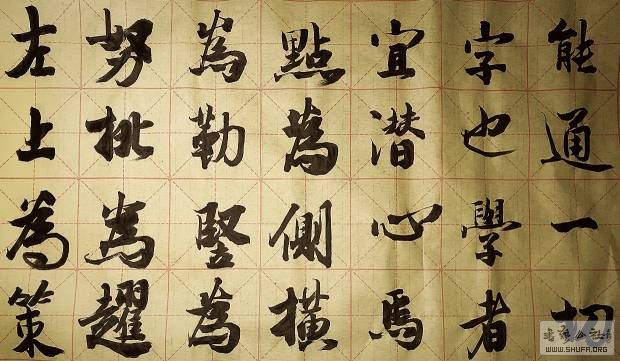 能通一切
字也學者
宜潜心焉
點為側橫
為勒豎為
努挑為趯
左上為策
WWW.SHUFA.ORG